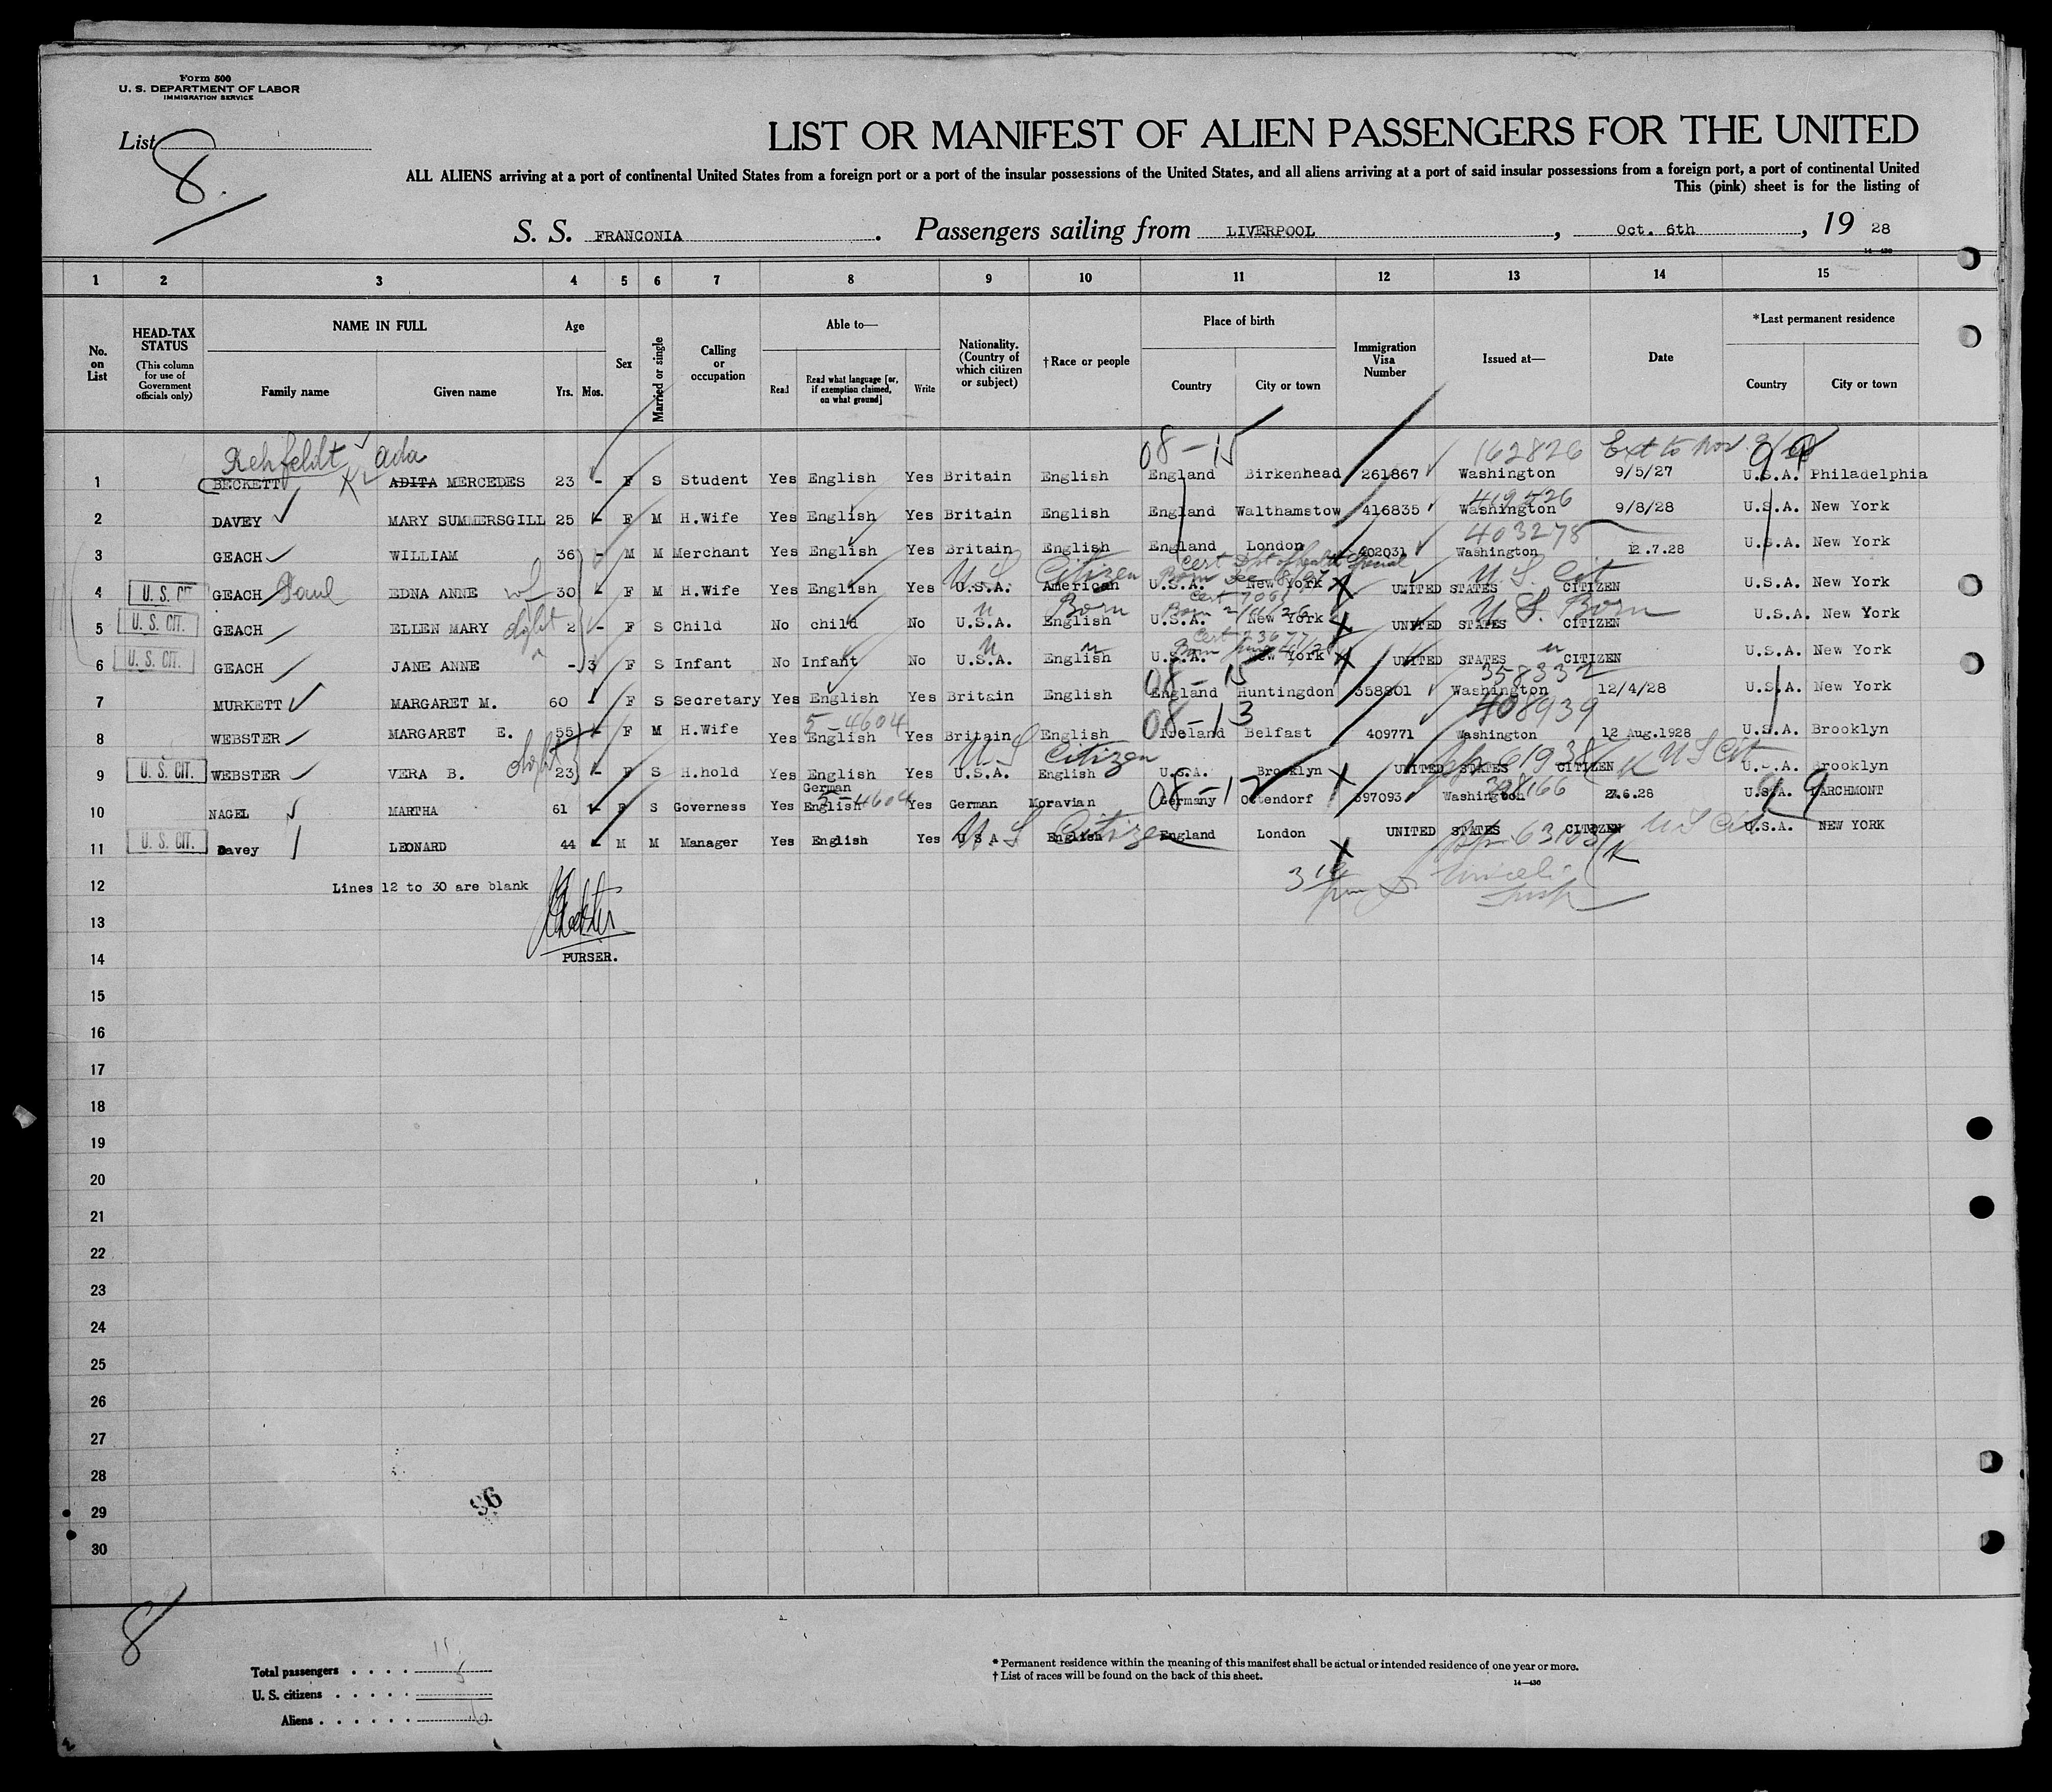 Form 500
U. S. DEPARTMENT OF LABOR
IMMIGRATION SERVICE
List 8.
LIST OR MANIFEST OF ALIEN PASSENGERS FOR THE UNITED
ALL ALIENS arriving at a port of continental United States from a foreign port or a port of the insular possessions of the United States, and all aliens arriving at a port of said insular possessions from a foreign port, a port of continental United
This (pink) sheet is for the listing of
S. S. FRANCONIA. Passengers sailing from LIVERPOOL, Oct. 6th, 19 28
14—430
1 2 3 4 5 6 7 8 9 10 11 12 13 14 15
No. on List
HEAD-TAX STATUS
(This column for use of Government officials only)
NAME IN FULL
Family name
Given name
Age
Yrs. Mos.
Sex
Married or single
Calling or occupation
Able to—
Read
Read what language [or, if exemption claimed, on what ground]
Write
Nationality. (Country of which citizen or subject)
†Race or people
Place of birth
Country
City or town
Immigration Visa Number
Issued at—
Date
*Last permanent residence
Country
City or town
Rehfeldt Ada 08-15 162826 Ext to Nov
1 BECKETT ADITA MERCEDES 23 - F S Student Yes English Yes Britain English England Birkenhead 261867 Washington 9/5/27 U.S.A. Philadelphia
419526
2 DAVEY MARY SUMMERSGILL 25 - F M H.Wife Yes English Yes Britain English England Walthamstow 416835 Washington 9/8/28 U.S.A. New York
403278
3 GEACH WILLIAM 36 - M M Merchant Yes English Yes Britain English England London 402031 Washington 12.7.28 U.S.A. New York
U.S. Citizen Cert Dpt of Health Special U.S. Cit
4 U. S. CIT GEACH Paul EDNA ANNE wf 30 - F M H.Wife Yes English Yes U.S.A. American U.S.A. New York UNITED STATES CITIZEN U.S.A. New York
" Born Cert 7061 Born 2/11/26 U.S. Born
5 U. S. CIT. GEACH ELLEN MARY dght 2 - F S Child No child No U.S.A. English U.S.A. New York UNITED STATES CITIZEN U.S.A. New York
" " Cert 23677 "
6 U. S. CIT. GEACH JANE ANNE " - 3 F S Infant No Infant No U.S.A. English U.S.A. New York UNITED STATES CITIZEN U.S.A. New York
08-15 358332
7 MURKETT MARGARET M. 60 - F S Secretary Yes English Yes Britain English England Huntingdon 358801 Washington 12/4/28 U.S.A. New York
5-4604 08-13 408939
8 WEBSTER MARGARET E. 55 - F M H.Wife Yes English Yes Britain English Ireland Belfast 409771 Washington 12 Aug.1928 U.S.A. Brooklyn
US Citizen K US Cit
9 U. S. CIT. WEBSTER VERA B. dght 23 - F S H.hold Yes English Yes U.S.A. English U.S.A. Brooklyn UNITED STATES CITIZEN U.S.A. Brooklyn
German 5-4604 08-12 398166
10 NAGEL MARTHA 61 - F S Governess Yes English Yes German Moravian Germany Ottendorf 397093 Washington 27.6.28 U.S.A. LARCHMONT
US Citizen US Cit
11 U. S. CIT. Davey LEONARD 44 - M M Manager Yes English Yes U S A English England London UNITED STATES CITIZEN U.S.A. NEW YORK
K
12 Lines 12 to 30 are blank
13
14 PURSER.
15
16
17
18
19
20
21
22
23
24
25
26
27
28
29 96
30
8
Total passengers . . . . 11
U. S. citizens . . . . . 5
Aliens . . . . . . 6
* Permanent residence within the meaning of this manifest shall be actual or intended residence of one year or more.
† List of races will be found on the back of this sheet.
14—430